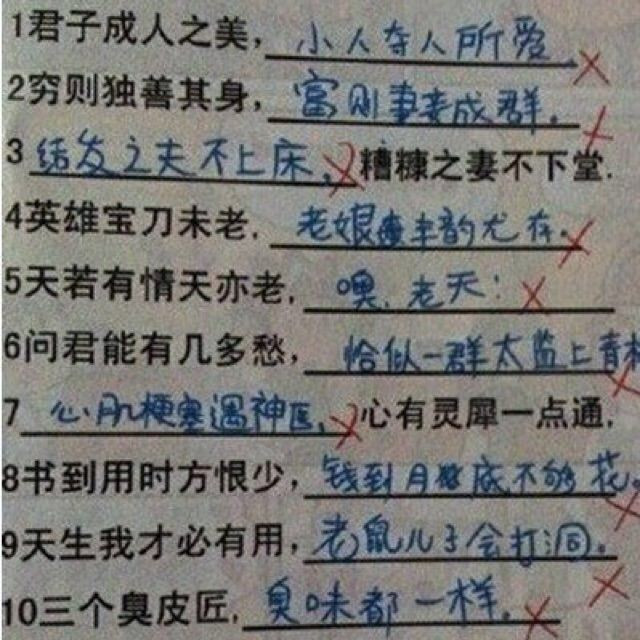 1君子成人之美，小人夺人所爱。
2穷则独善其身，富则妻妾成群。
3结发之夫不上床，糟糠之妻不下堂.
4英雄宝刀未老，老娘丰韵尤存。
5天若有情天亦老，噢，老天！
6问君能有几多愁，恰似一群太监上青楼
7心肌梗塞遇神医，心有灵犀一点通，
8书到用时方恨少，钱到月底不够花。
9天生我才必有用，老鼠儿子会打洞。
10三个臭皮匠，臭味都一样。